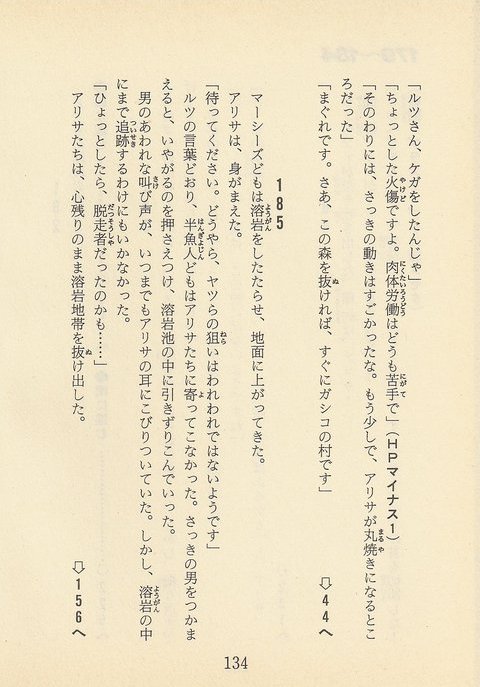 「ルツさん、ケガをしたんじゃ」
「ちょっとした火傷ですよ。肉体労働はどうも苦手で」(HPマイナス1)
「そのわりには、さっきの動きはすごかったな。もう少しで、アリサが丸焼きになるとこ
ろだった」
「まぐれです。さあ、この森を抜ければ、すぐにガシコの村です」
⇨44へ
185
マーシーズどもは溶岩をしたたらせ、地面に上がってきた。
アリサは、身がまえた。
「待ってください。どうやら、ヤツらの狙いはわれわれではないようです」
ルツの言葉どおり、半魚人どもはアリサたちに寄ってこなかった。さっきの男をつかま
えると、いやがるのを押さえつけ、溶岩池の中に引きずりこんでいった。
男のあわれな叫び声が、いつまでもアリサの耳にこびりついていた。しかし、溶岩の中
にまで追跡するわけにもいかなかった。
「ひょっとしたら、脱走者だったのかも……」
アリサたちは、心残りのまま溶岩地帯を抜け出した。
⇨156へ
134